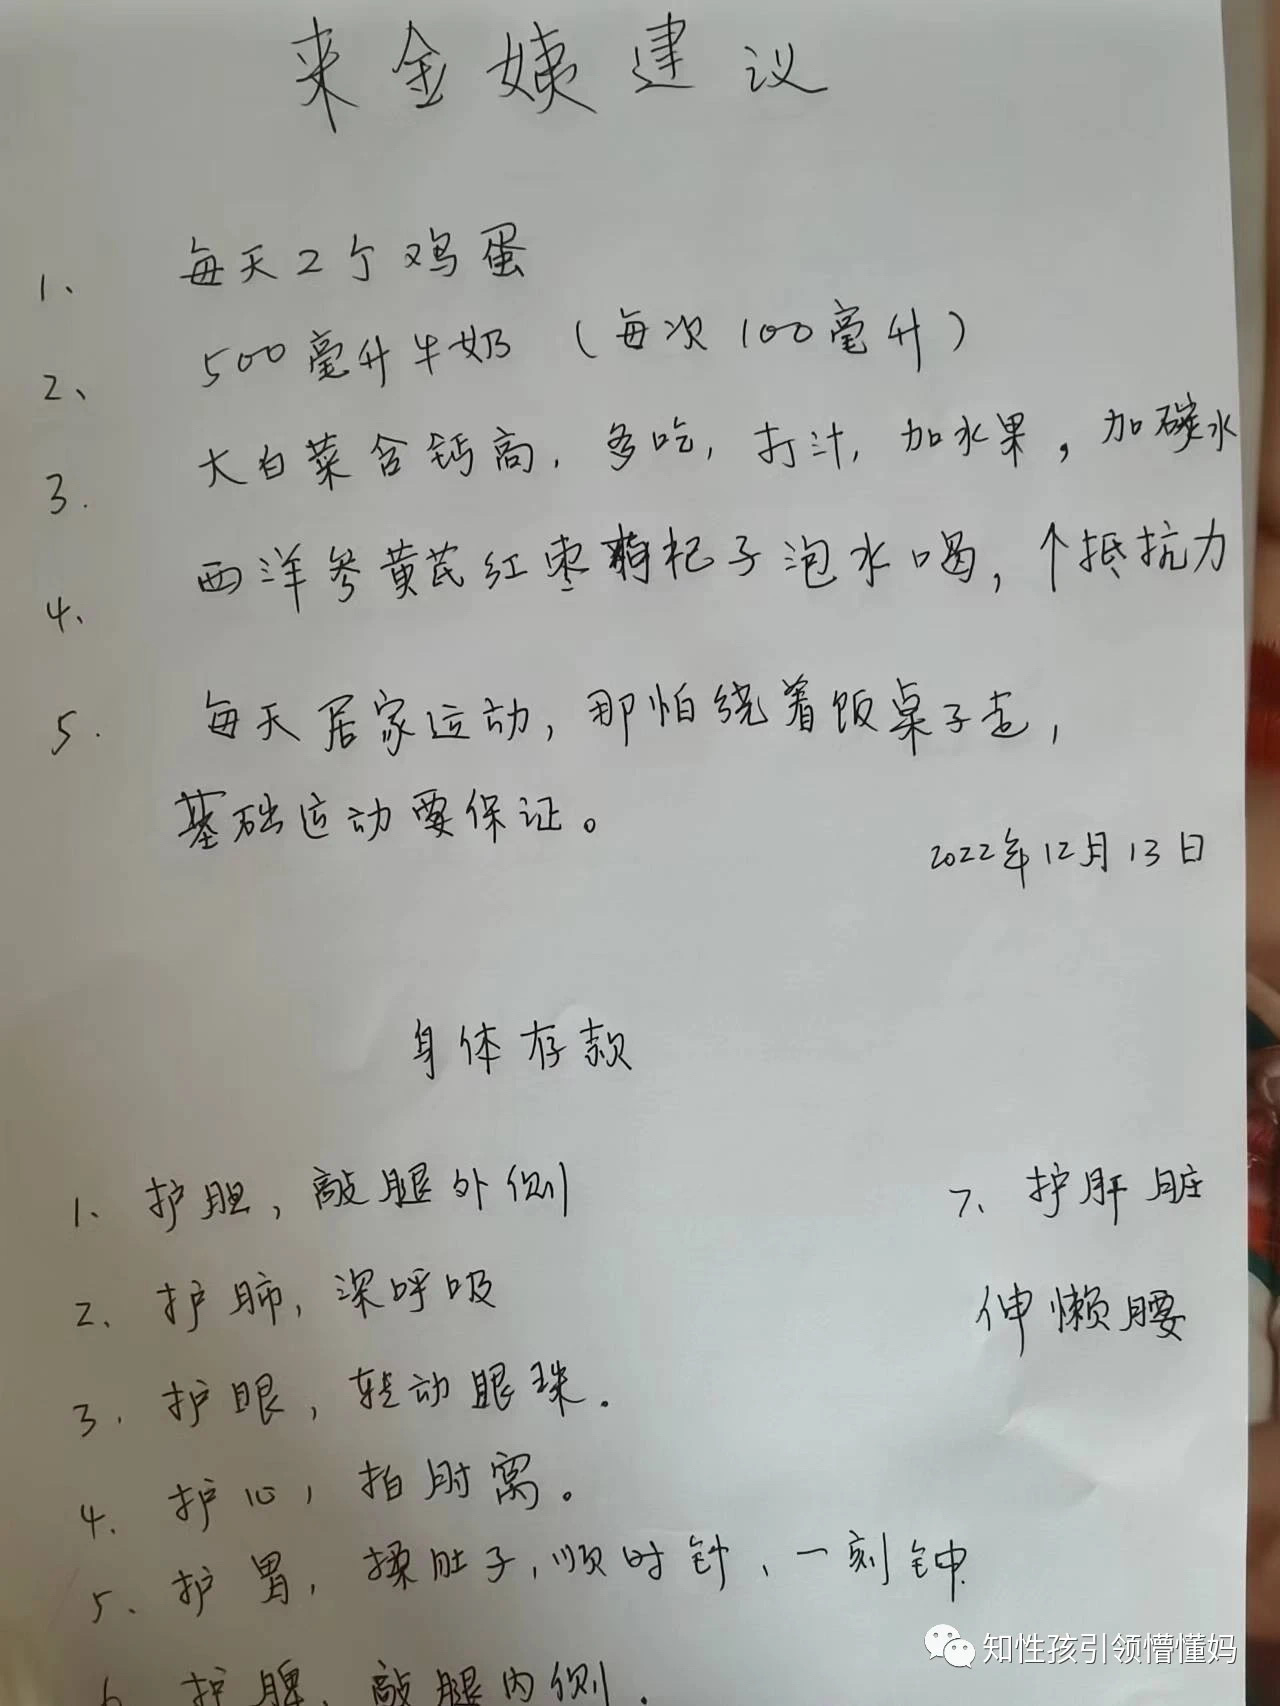 来金姨建议
1、 每天2个鸡蛋
2、 500毫升牛奶（每次100毫升）
3. 大白菜含钙高，多吃，打汁，加水果，加碳水
4. 西洋参黄芪红枣枸杞子泡水喝，个抵抗力
5. 每天居家运动，那怕绕着饭桌子走，
基础运动要保证。
2022年12月13日
身体存款
1、护胆，敲腿外侧
2、护肺，深呼吸
3．护眼，转动眼珠．
4．护心，拍肘窝。
5、护胃，揉肚子，顺时针、一刻钟．
6 护脾，敲腿内侧．
7、护肝脏
伸懒腰
知性孩引领懵懂妈